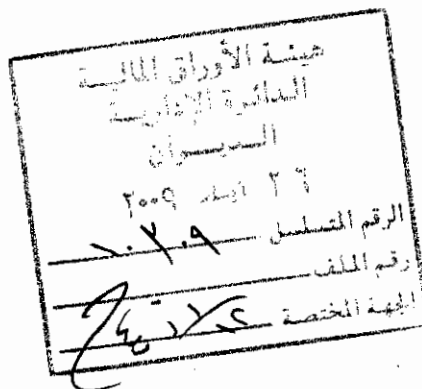 هيئة الأوراق المالية
الدائرة الإدارية
الديوان
٢٦ ٢٠٠٩
الرقم المتسلسل ١٠٧٠٩
رقم الملف
الجهة المختصة